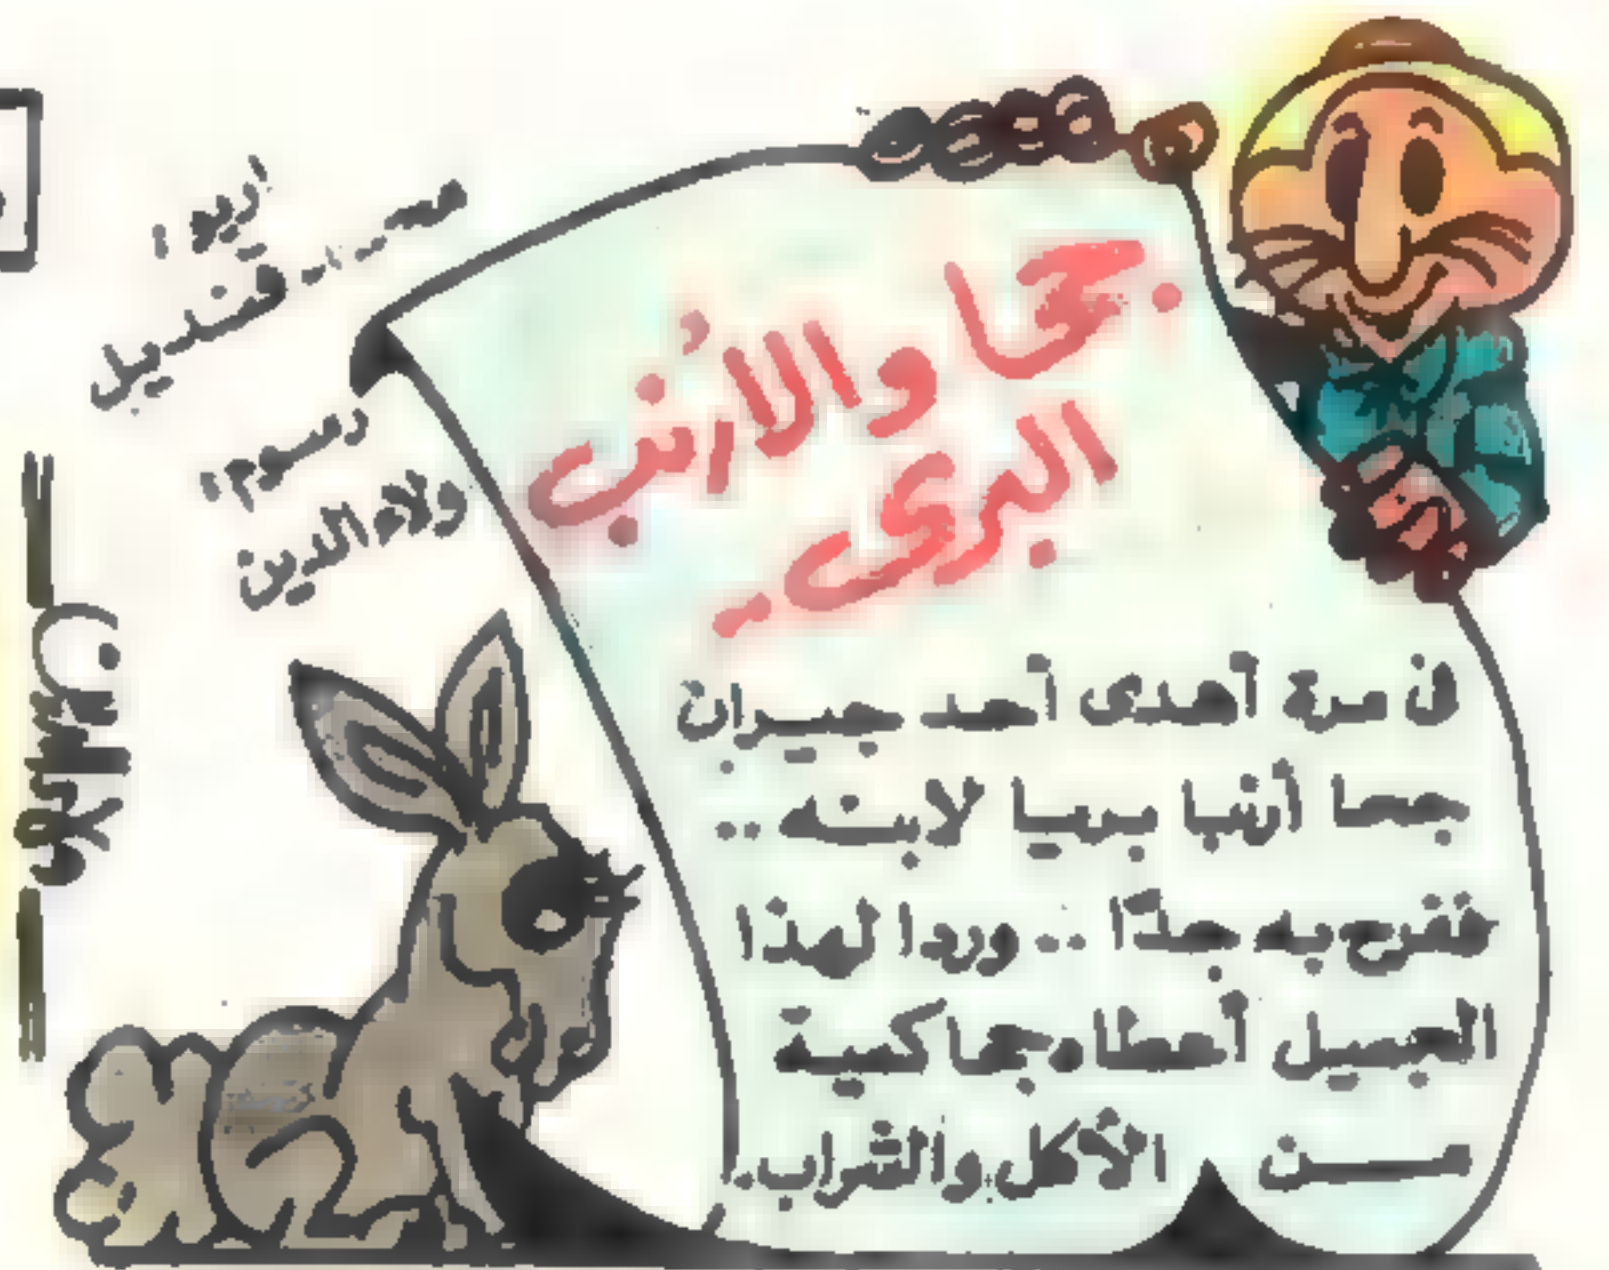 جحا والأرنب
البرى..
رسوم:
ولاء الدين
قنديل
فى مرة أهدى أحد جيران
جحا أرنبا بريا لابنه ..
ففرح به جدًا .. وردا لهذا
الجميل أعطاه جحا كمية
مـــن الأكل والشراب..